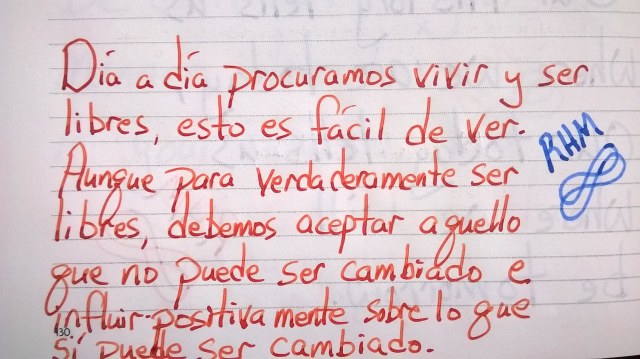 Día a día procuramos vivir y ser
libres, esto es fácil de ver.
Aunque para verdaderamente ser
libres, debemos aceptar aquello
que no puede ser cambiado e
influir positivamente sobre lo que
sí puede ser cambiado.
RHM
30